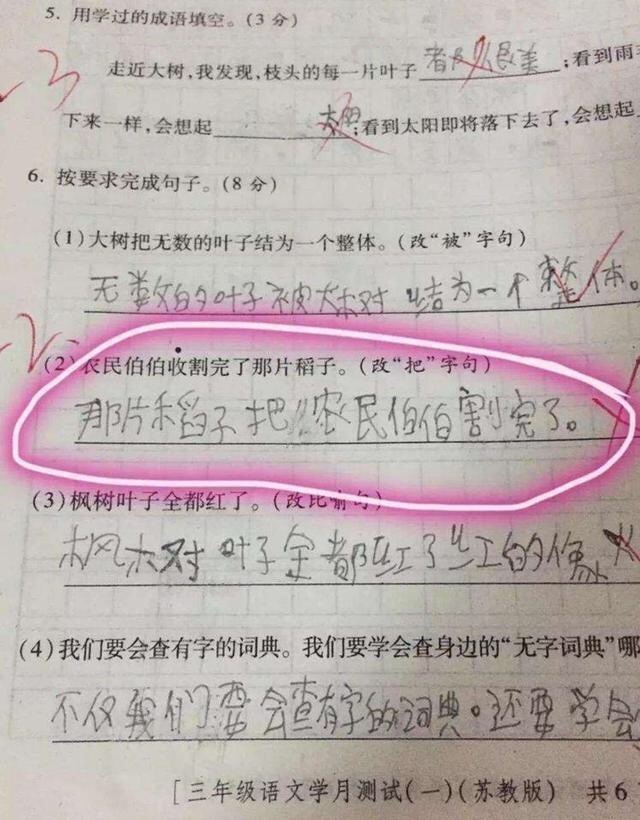 5. 用学过的成语填空。(3 分)
走近大树,我发现,枝头的每一片叶子 ;看到雨
下来一样,会想起 ;看到太阳即将落下去了,会想起
6. 按要求完成句子。(8 分)
(1)大树把无数的叶子结为一个整体。(改“被”字句)
无数的叶子被大树 结为一个 整体。
(2)农民伯伯收割完了那片稻子。(改“把”字句)
那片稻子把农民伯伯割完了。
(3)枫树叶子全都红了。(改比喻句)
枫树 叶子全都红了红的像
(4)我们要会查有字的词典。我们要学会查身边的“无字词典”哪
不仅我们要会查有字的词典。还要学会
[三年级语文学月测试(一)(苏教版) 共6